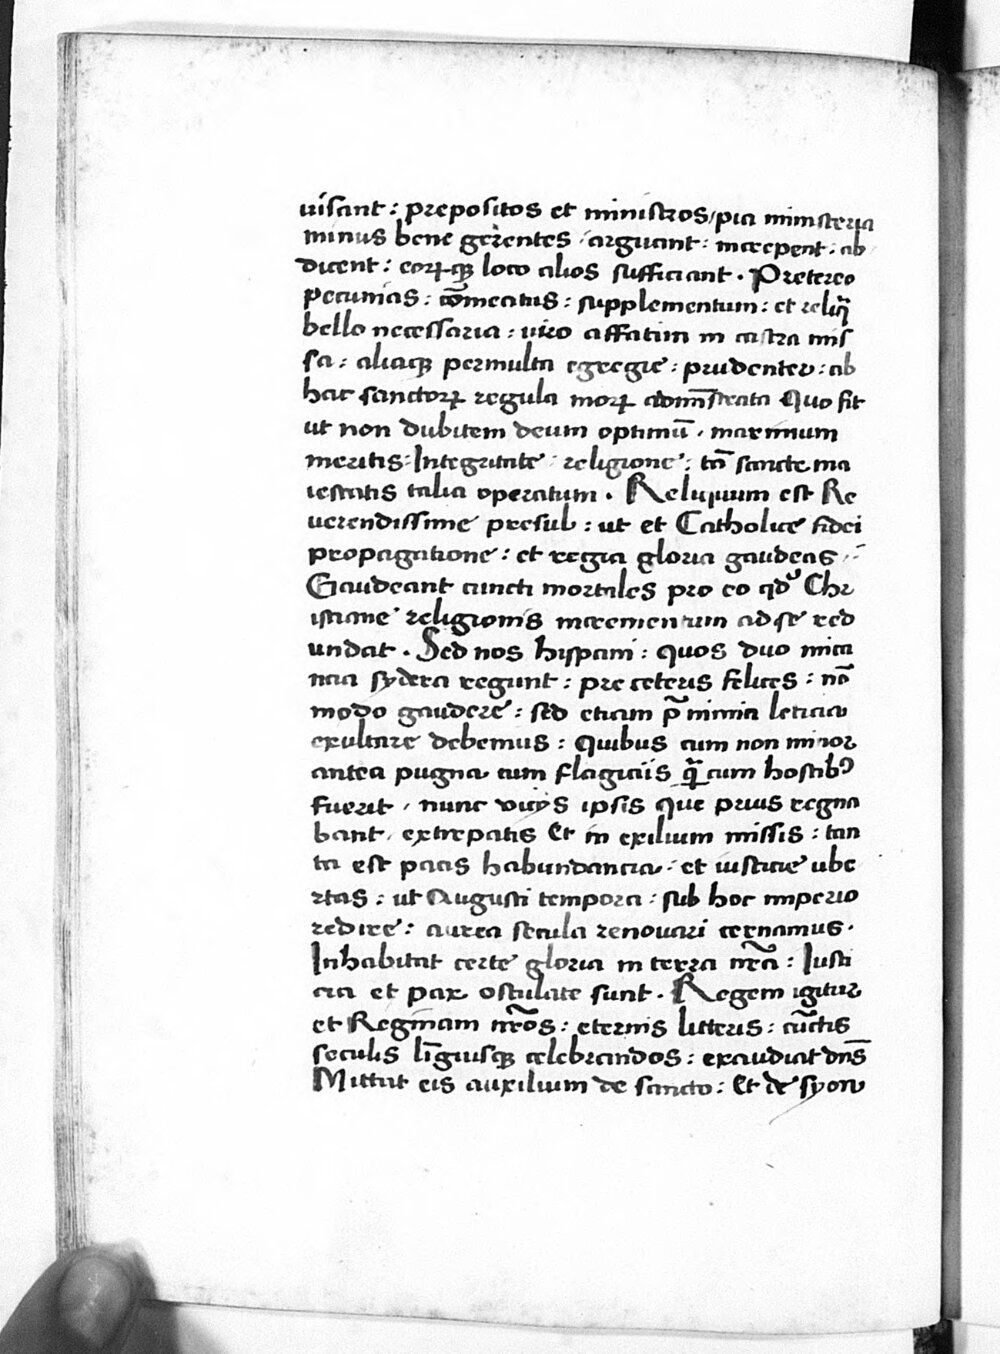 uisant : prepositos et ministros / pia ministeria
minus bene gerentes / arguant : increpent : ab
dicent : eorꝝqꝫ loco alios sufficiant . Preterea
pecunias : cōmeatus : supplementum : et reliq̃
bello necessaria : uiro affatim in castra mis
sa : aliaqꝫ permulta egregie : prudenter : ab
hac sanctorꝝ regula morꝝ admīstrata Quo fit
ut non dubitem deum optimū . maximum
meritis : Integritate : religione : tñ sancte ma
iestatis talia operatum . Reliquum est Re
uerendissime presul : ut et Catholice fidei
propagatione : et regia gloria gaudeas :
Gaudeant cuncti mortales pro eo qđ Chr
istiane religionis incrementum ad se red
undat . Sed nos hispani : quos duo mica
ncia sydera regunt : pre ceteris felices : nō
modo gaudere : sed etiam p̃ nimia leticia
exultare debemus : Quibus cum non minor
antea pugna cum flagiciis q̃ cum hostibꝰ
fuerit / nunc vicijs ipsis que prius regna
bant / extirpatis Et in exilium missis : tan
ta est pacis habundancia : et iusticie ube
rtas : ut Augusti tempora : sub hoc imperio
redire : aurea secula renouari cernamus .
Inhabitat certe gloria in terra nr̃a : Iusti
cia et pax osculate sunt . Regem igitur
et Reginam nr̃os : eternis litteris : cūctis
seculis līguisqꝫ celebrandos : exaudiat dñs
Mittat eis auxilium de sancto : Et de syon